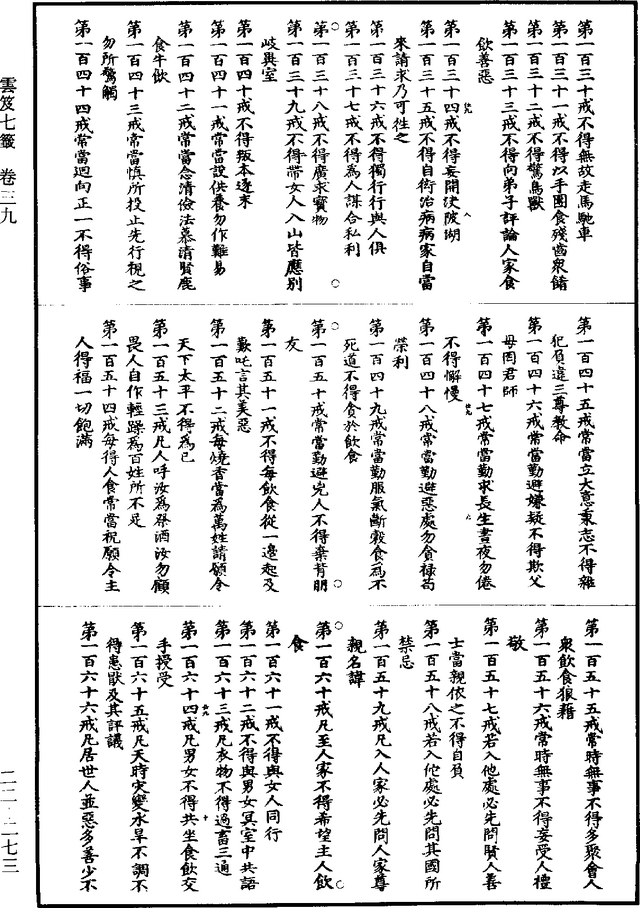 第一百三十戒不得無故走馬馳車
第一百三十一戒不得以手團食殘齒衆餚
第一百三十二戒不得驚鳥獸
第一百三十三戒不得向弟子評論人家食
飲善惡
第一百三十四戒不得妄開決陂湖
第一百三十五戒不得自術治病病家自當
來請求乃可往之
第一百三十六戒不得獨行行與人俱
第一百三十七戒不得為人謀合私利
第一百三十八戒不得廣求寳物
第一百三十九戒不得帶女人入山皆應別
岐異室
第一百四十戒不得叛本逐末
第一百四十一戒常當設供養勿作難易
第一百四十二戒常當念清儉法慕清賢鹿
食牛飲
第一百四十三戒常當慎所投止先行視之
勿所驚觸
第一百四十四戒常當迴向正一不得俗事
第一百四十五戒常當立大意秉志不得雜
犯負違三尊教命
第一百四十六戒常當勤避嫌疑不得欺父
毋罔君師
第一百四十七戒常當勤求長生晝夜勿倦
不得懈慢
第一百四十八戒常當勤避惡處勿貪禄苟
榮利
第一百四十九戒常當勤服氣斷穀食為不
死道不得貪於飲食
第一百五十戒常當勤避兇人不得棄背朋
友
第一百五十一戒不得每飲食從一邊起及
歎吒言其美惡
第一百五十二戒每燒香當為萬姓請願令
天下太平不得為已
第一百五十三戒凡人呼汝為祭酒汝勿顧
畏人自作輕躁為百姓所不足
第一百五十四戒每得人食常當祝願令主
人得福一切飽滿
第一百五十五戒常時無事不得多聚會人
衆飲食狼藉
第一百五十六戒常時無事不得妄受人禮
敬
第一百五十七戒若入他處必先問賢人善
士當親依之不得自負
第一百五十八戒若入他處必先問其國所
禁忌
第一百五十九戒凡入人家必先問人家尊
親名諱
第一百六十戒凡至人家不得希望主人飲
食
第一百六十一戒不得與女人同行
第一百六十二戒不得與男女冥室中共語
第一百六十三戒凡衣物不得過畜三通
第一百六十四戒凡男女不得共坐食飲交
手授受
第一百六十五戒凡天時灾變水旱不調不
得患猒及其評議
第一百六十六戒凡居世人並惡多善少不
雲笈七籤 卷三九
二二·二七三